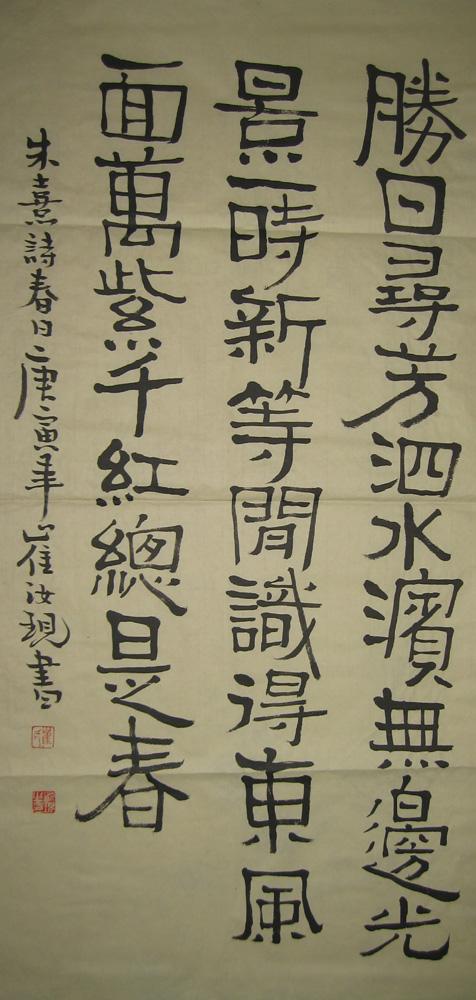 勝日尋芳泗水濱無邊光
景一時新等閒識得東風
面萬紫千紅總是春
朱熹詩春日庚寅年崔汝現書